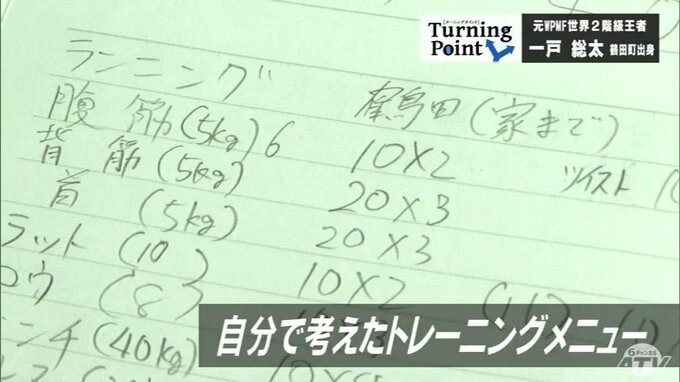 Turning Point
[ターニングポイント]
元WPMF世界2階級王者
一戸 総太 鶴田町出身
ランニング 鶴田(家まで)
腹筋(5kg)6 10×2 ツイスト
背筋(5kg) 20×3
首(5kg) 20×3
ラット(10) 10×2
ロウ(8)
ンチ(40kg)
自分で考えたトレーニングメニュー
6チャンネル
ATV